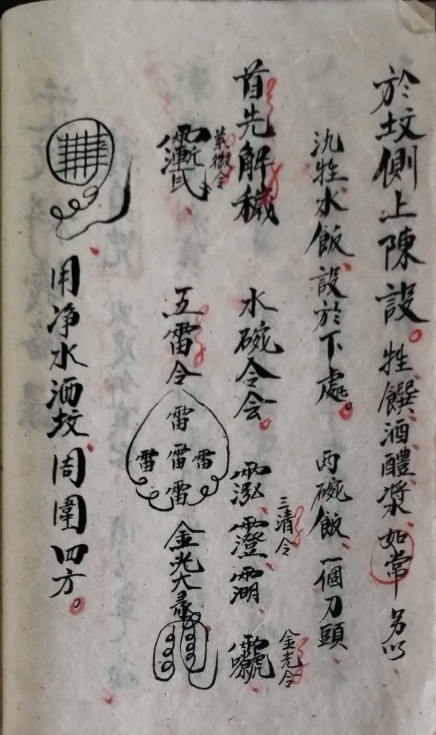 於坟側上陳設。牲饌酒醴漿、如常、另以、
氿牲水飯、設於下處。两碗飯、一個刀頭、
首先解穢 水碗令会。
三清令
金光令
紫微令
五雷令 雷 雷 雷 雷 雷 金光大
用净水洒坟、周圍四方。